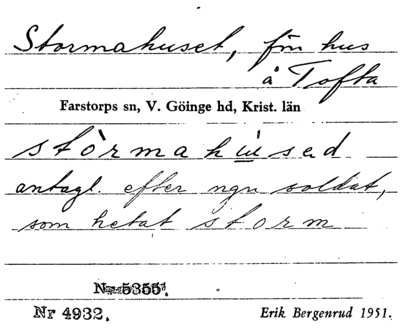 Stormahuset, f͞ı hus
å Tofta
Farstorps sn, V. Göinge hd, Krist. län
stòrmahúsed
antagl. efter ngn soldat,
som hetat storm
Nr 5355.
Nr 4932.
Erik Bergenrud 1951.